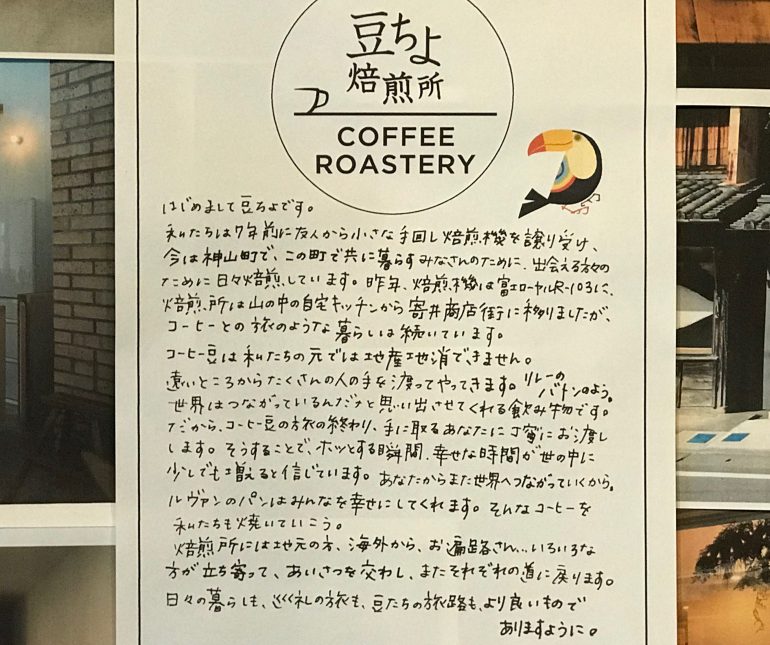 豆ちよ
焙煎所
COFFEE
ROASTERY
はじめまして豆ちよです。
私たちは7年前に友人から小さな手回し焙煎機を譲り受け、
今は神山町で、この町で共に暮らすみなさんのために、出会える方々の
ために日々焙煎しています。昨年、焙煎機は富士ローヤルR-103に、
焙煎所は山の中の自宅キッチンから寄井商店街に移りましたが、
コーヒーとの旅のような暮らしは続いています。
コーヒー豆は私たちの元では地産地消できません。
遠いところからたくさんの人の手を渡ってやってきます。リレーのバトンのよう。
世界はつながっているんだナと思い出させてくれる飲み物です。
だから、コーヒー豆の旅の終わり、手に取るあなたに丁寧にお渡し
します。そうすることで、ホッとする瞬間、幸せな時間が世の中に
少しでも増えると信じています。あなたからまた世界へつながっていくから。
ルヴァンのパンはみんなを幸せにしてくれます。そんなコーヒーを
私たちも焼いていこう。
焙煎所には地元の方、海外から、お遍路さん…いろいろな
方が立ち寄って、あいさつを交わし、またそれぞれの道に戻ります。
日々の暮らしも、巡礼の旅も、豆たちの旅路も、より良いもので
ありますように。